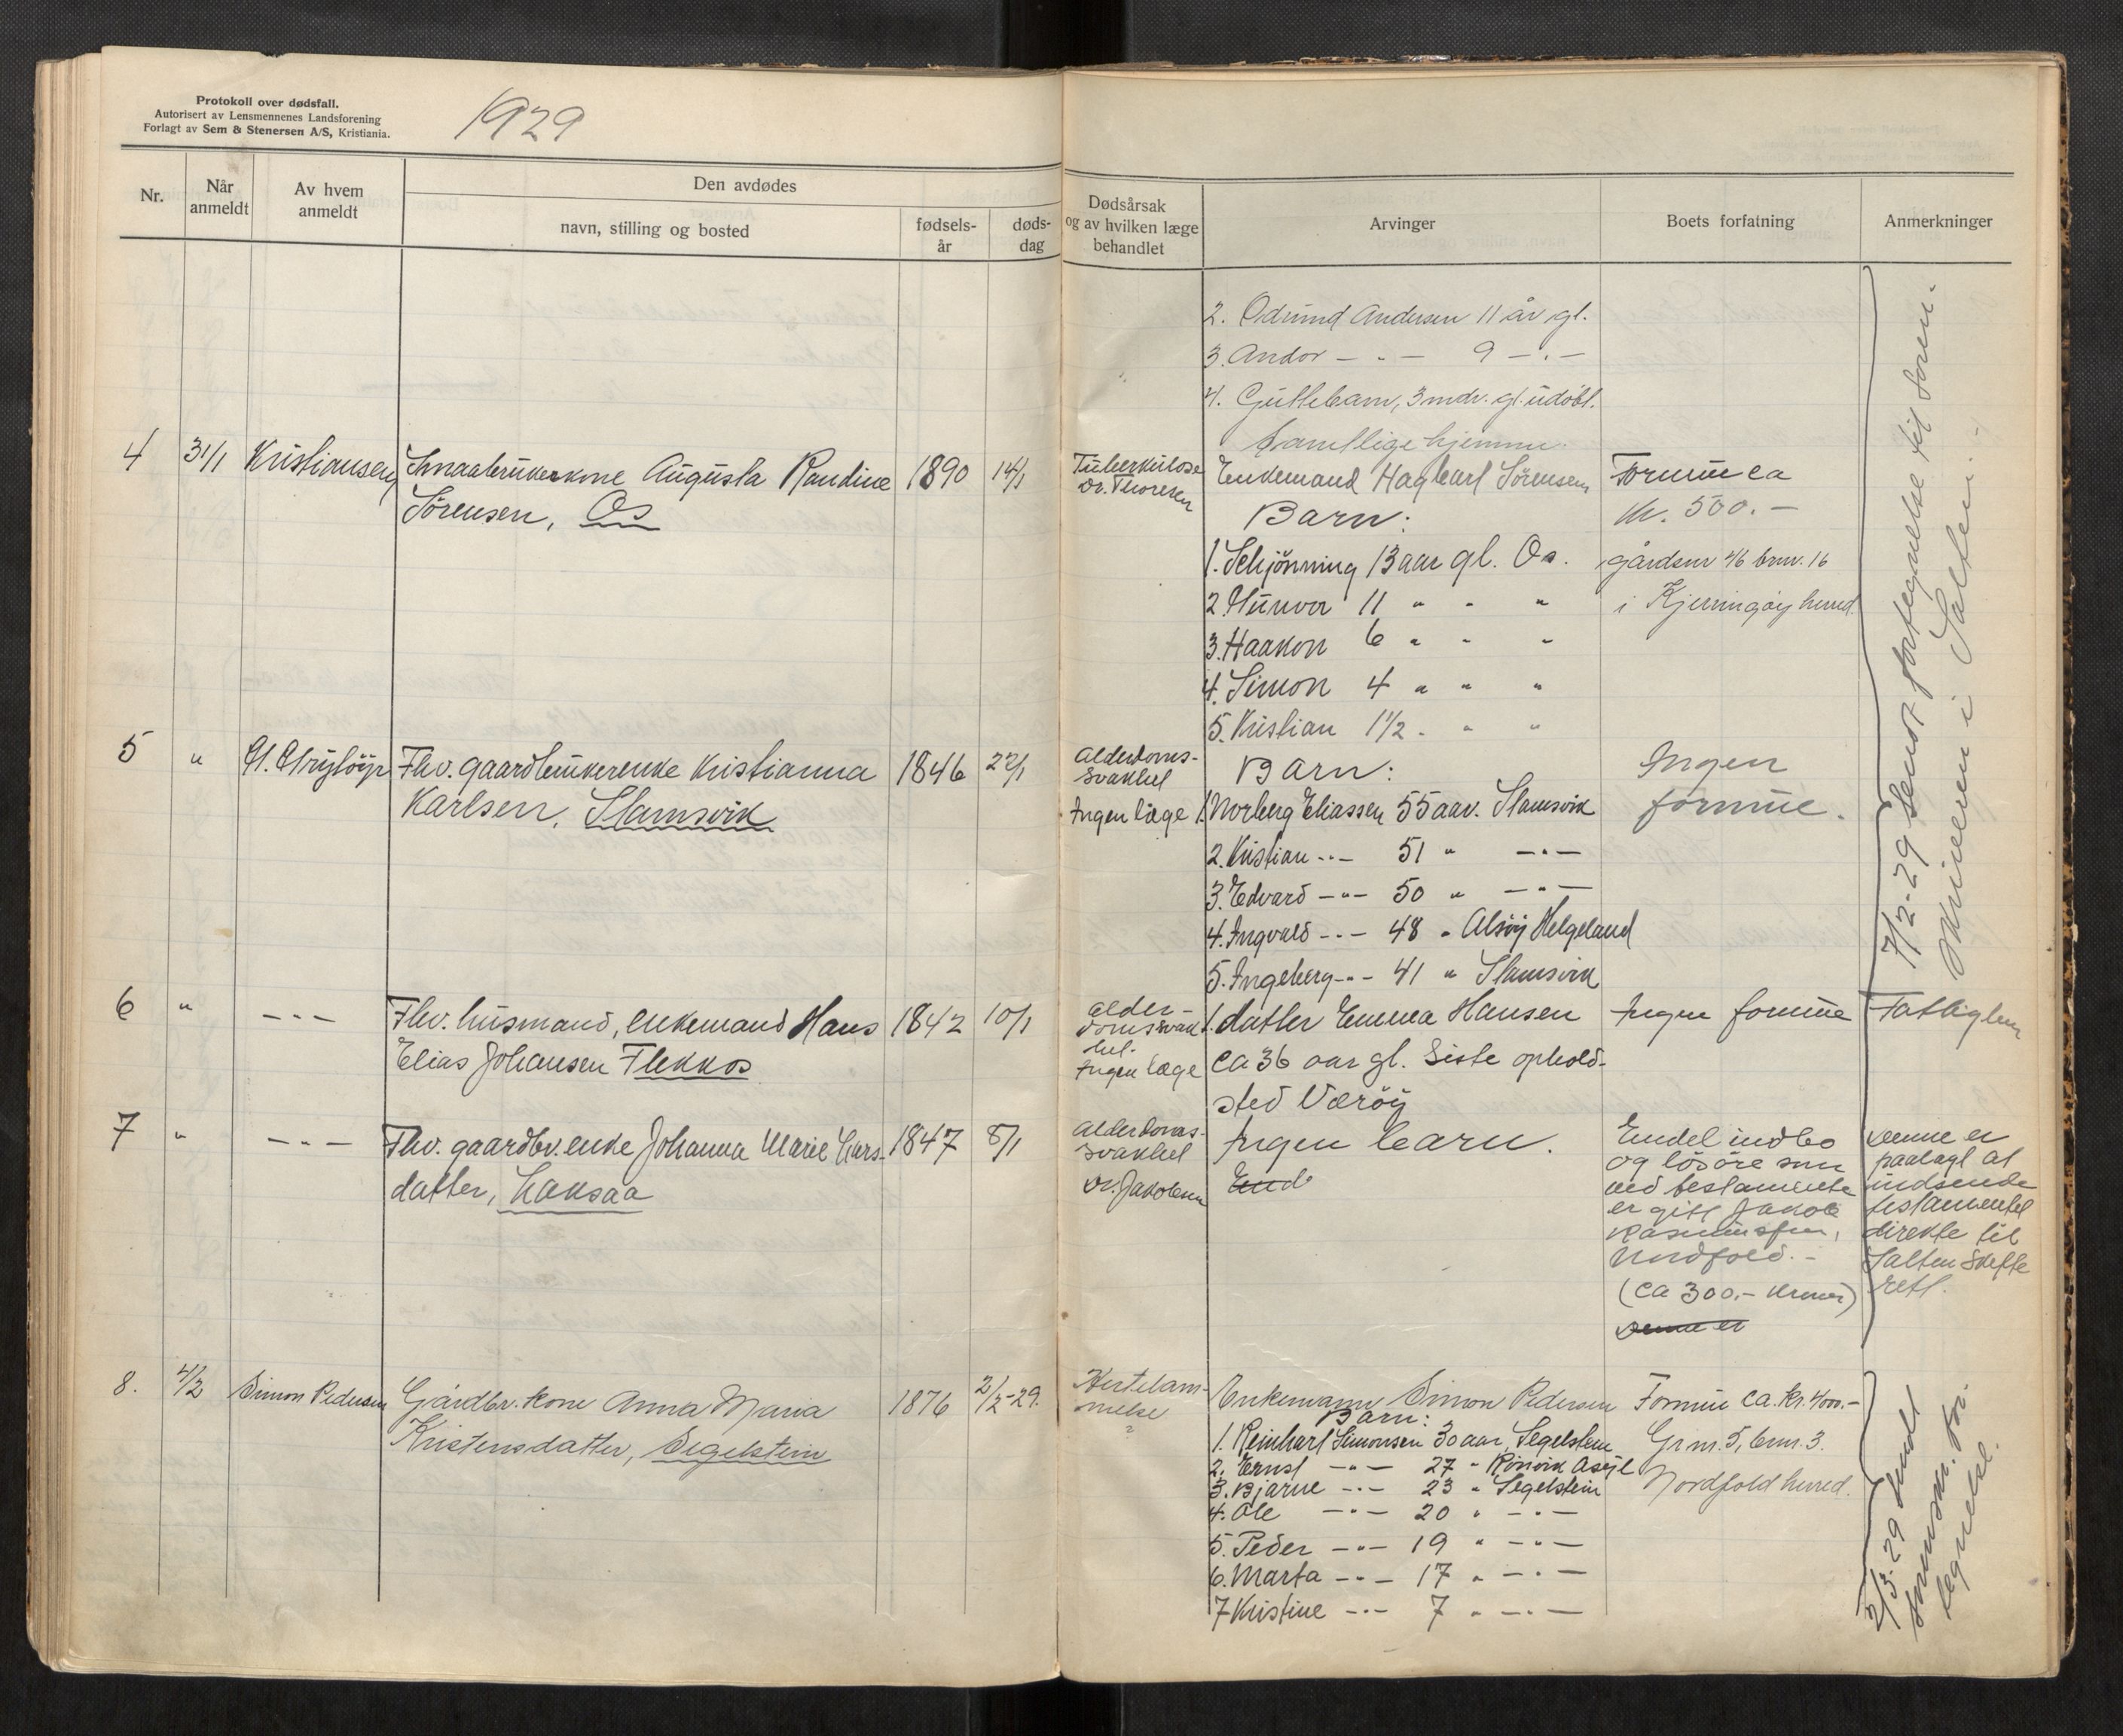 Protokoll over dødsfall.
Autorisert av Lensmennenes Landsforening
Forlagt av Sem & Stenersen A/S, Kristiania.
1929
Nr.
Når anmeldt
Av hvem anmeldt
Den avdødes
navn, stilling og bosted
fødsels-år
døds-dag
Dødsårsak og av hvilken læge behandlet
Arvinger
Boets forfatning
Anmerkninger
2. Odrund Andersen 11 år gl.
3. Andor — " — 9 — " —
4. Guttebarn, 3 mdr. gl. udöbt.
Samtlige hjemme.
4 31/1 Kristiansen Smaabrukerkone Augusta Randine 1890 14/1
Sørensen, Os
Tuberkulose
Dr. Thoresen
Enkemand Hagbart Sörensen
Barn:
1. Schjönning 13 aar gl. Os.
2. Gunvor 11 " " "
3. Haakon 6 " " "
4. Simon 4 " " "
5. Kristian 1 1/2 " " "
Formue ca
Kr. 500.-
gårdsnr 46 brnr. 16
i Kjerringøy herred.
5 " Fhv. gaardbrukerenke Kristianna 1846 22/1
Karlsen, Slamsvik
Alderdoms-
svakhet
Ingen læge
Barn:
1. Norberg Eliassen 55 aar. Slamsvik
2. Kristian - " - 51 " — " —
3. Edvard — " — 50 " — " —
4. Ingvald - " - 48 " Alsöy Helgeland
5. Ingeberg - " - 41 " Slamsvik
Ingen
formue.
6 " - - - Fhv. husmand, enkemand Hans 1842 10/1
Elias Johansen Flekkos
alder-
domssvak
het.
Ingen læge
1. datter Emma Hansen
ca 36 aar gl. Siste ophold-
stedVæröy
Ingen formue
Fattiglem
7 " - " - Fhv. gaardbr. enke Johanna Marie Lars- 1847 8/1
datter, Laksaa
Alderdoms-
svakhet
Dr. Jakobsen
Ingen barn.
Endel indbo
og lösöre som
ved testamente
er gitt Jakob
Rasmussen,
Nordfold.-
(ca 300.- kroner)
Denne er
Denne er
paalagt at
indsende
testamentet
direkte til
Salten Skifte
rett.
7/2-29 Sendt fortegnelse til soren-
skriveren i Salten.
8. 4/2 Simon Pedersen Gårdbr. kone Anna Maria 1876 2/2-29.
Kristensdatter, Segelstein
Hjertelam-
melse
?
Enkemann Simon Pedersen
Barn:
1. Reinhart Simonsen 30 aar, Segelstein
2. Ernst - " - 27 " Rönvik Asyl
3. Bjarne - " - 23 " Segelstein
4. Ole - " - 20 " - " -
5. Peder - " - 19 " - " -
6. Marta - " - 17 " - " -
7 Kristine - " - 7 " - " -
Formue ca. kr. 4000.-
Gr. nr. 5, brnr. 3.
Nordfold herred.
2/3-29 sendt
sorenskr. for-
tegnelse.